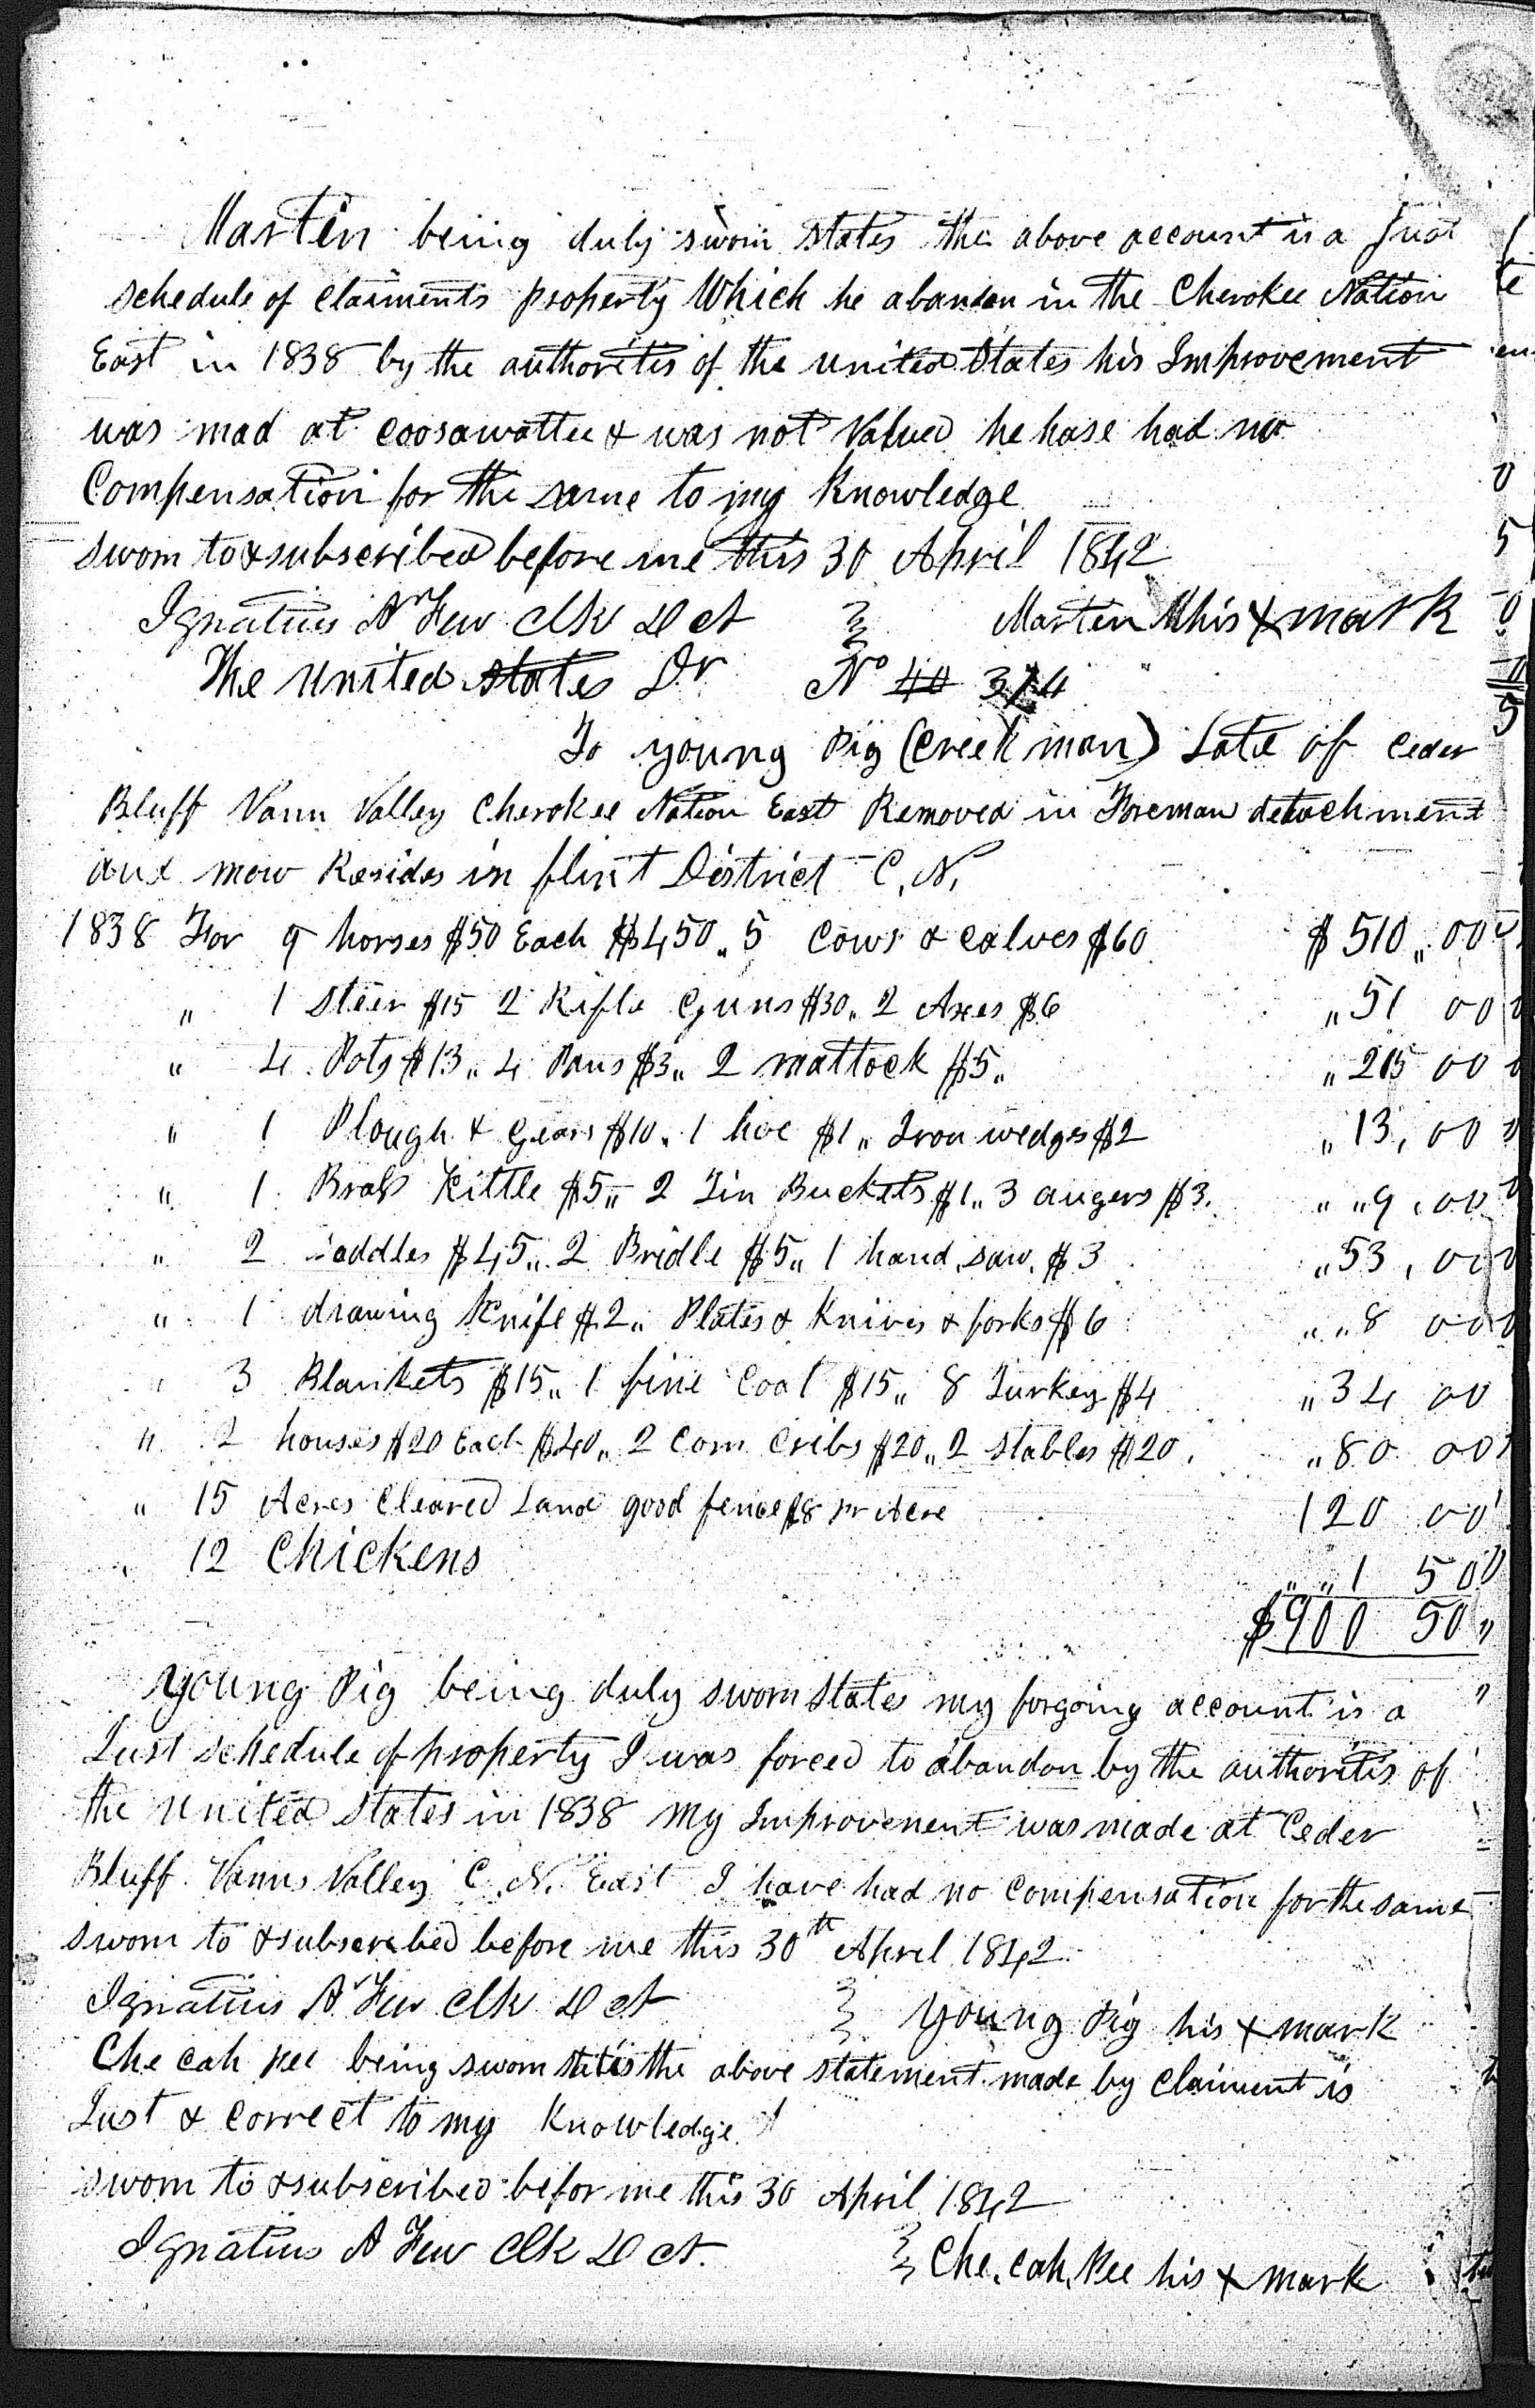 Martin being duly sworn states the above account is a Just
schedule of claiments property Which he abandon in the Cherokee Nation
East in 1838 by the authorites of the united States his Improvement
was mad at coosawattee & was not Valued he hase had no
Compensation for the same to my Knowledge
sworn to & subscribed before me this 30 April 1842
Ignatius A Few clk D ct } Martin his x mark
The United States Dr No 40 314
To young Pig (creek man) Late of Ceder
Bluff Vann Valley Cherokee Nation East Removed in Foreman detachment
and now Resides in flint District C. N.
1838 For 9 horses $50 Each $450 „ 5 Cows & calves $60 $510 „ 00
„ 1 Steer $15 2 Rifle Guns $30 „ 2 Axes $6 „ 51 00
„ 4 Pots $13 „ 4 Pans $3 „ 2 mattock $5 „ „ 21 00
„ 1 Plough & Gears $10 „ 1 hoe $1 „ Iron wedges $2 „ 13, 00
„ 1 Brass Kittle $5 „ 2 Tin Buckets $1 „ 3 augers $3. „ „ 9, 00
„ 2 saddles $45 „ 2 Bridle $5 „ 1 hand saw $3 „ 53, 00
„ 1 drawing Knife $2 „ Plates & Knives & forks $6 „ „ 8 00
„ 3 Blankets $15 „ 1 fine Coat $15 „ 8 Turkey $4 „ 34 00
„ 2 houses $20 Each $40 „ 2 Corn Cribs $20 „ 2 stables $20. „ 80 00
„ 15 Acres Cleared Land good fence $8 pr Acre 120 00
„ 12 Chickens „ „ 1 50
$900 50 „
Young Pig being duly sworn states my forgoing account is a
Just schedule of property I was forced to abandon by the authorites of
the United States in 1838 my Improvement was made at Ceder
Bluff Vanns Valley C. N. East I have had no compensation for the same
sworn to & subscribed before me this 30th April 1842
Ignatius A Few clk D ct } Young Pig his x mark
Che cah pee being sworn states the above statement made by claiment is
Just & correct to my Knowledge
sworn to & subscribed befor me this 30 April 1842
Ignatius A Few clk D ct. } Che. cah. Pee his x mark